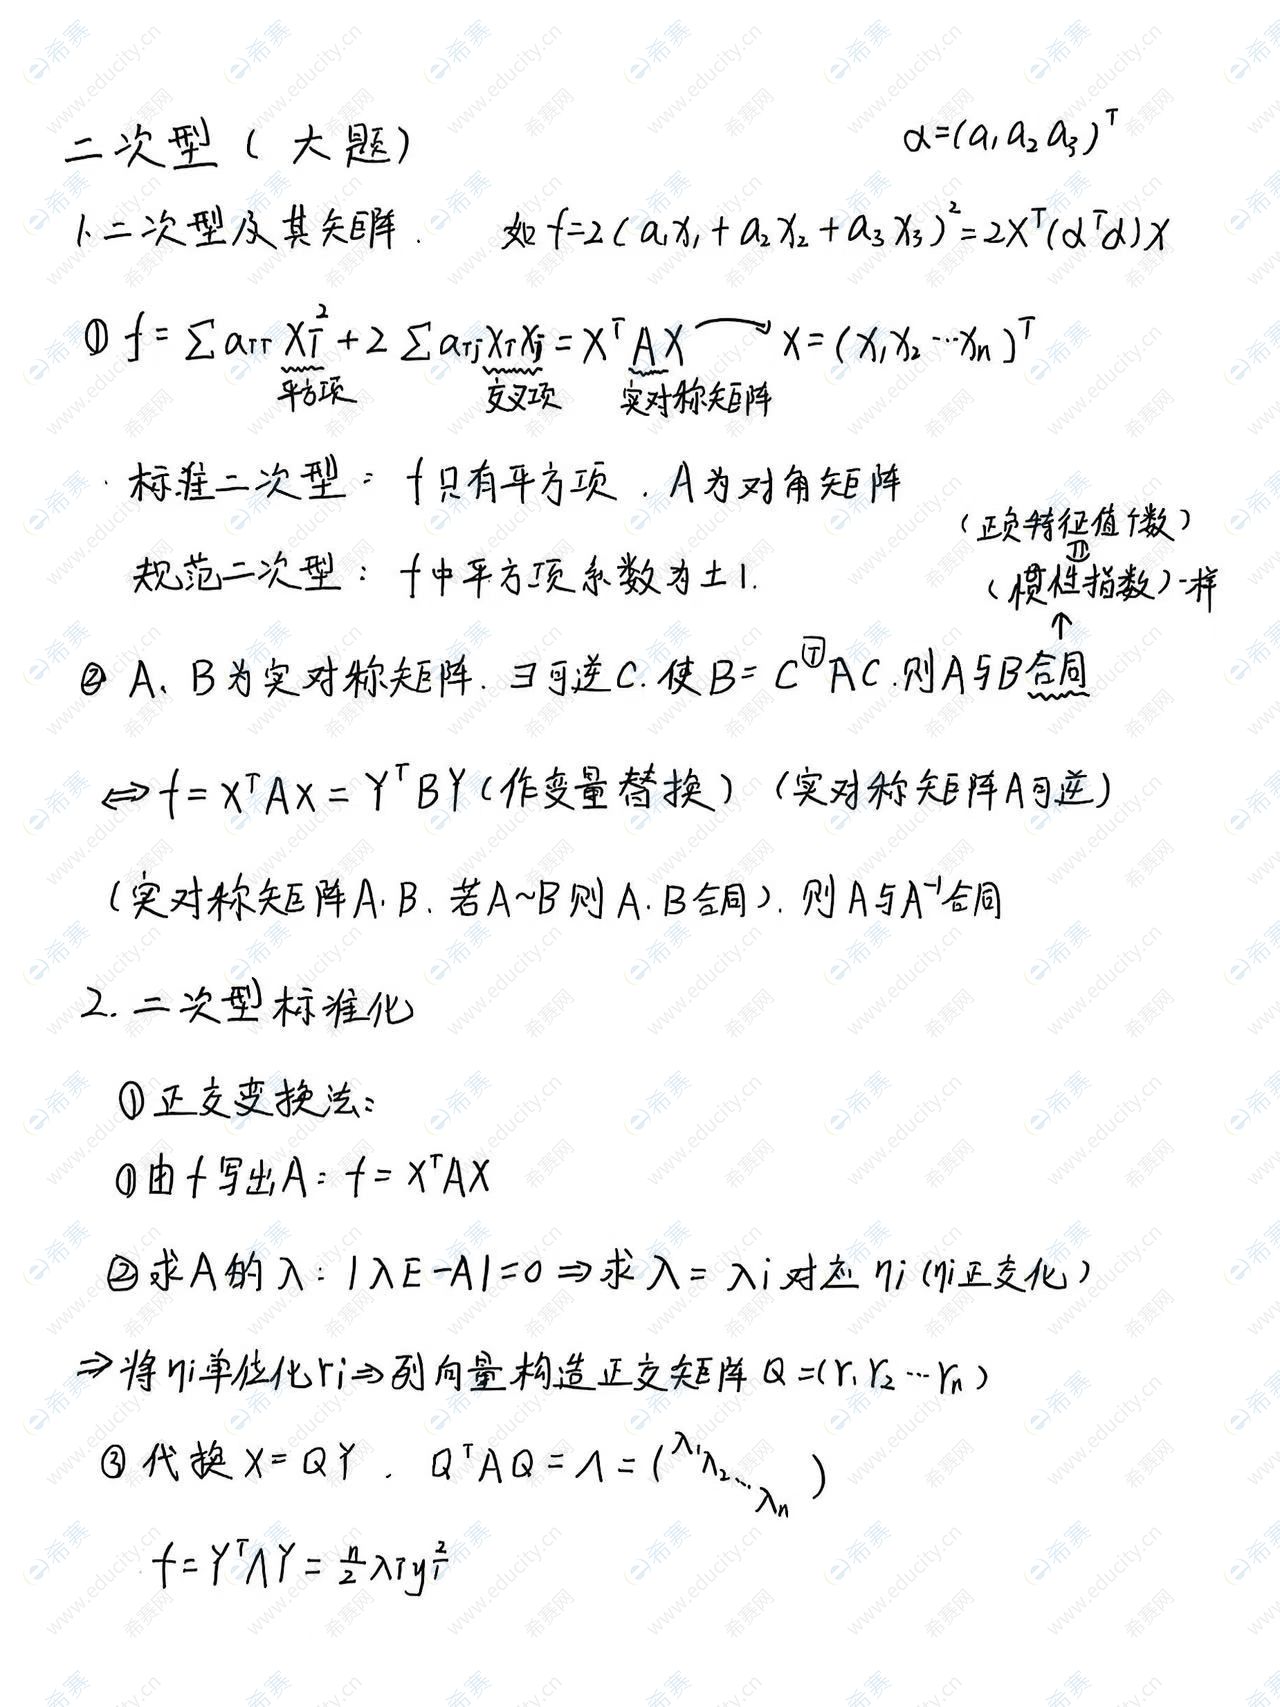 二次型(大题)
α=(a₁a₂a₃)ᵀ
1.二次型及其矩阵.
如 f=2(a₁x₁+a₂x₂+a₃x₃)²=2Xᵀ(αᵀα)X
① f=∑aᵢᵢxᵢ²+2∑aᵢⱼxᵢxⱼ=XᵀAX → X=(x₁x₂…xₙ)ᵀ
平方项 交叉项 实对称矩阵
·标准二次型: f只有平方项.A为对角矩阵
(正负特征值个数)
规范二次型: f中平方项系数为±1.
(惯性指数)一样
↑
② A、B为实对称矩阵.∃可逆C.使B=CᵀAC.则A与B合同
⇔f=XᵀAX=YᵀBY(作变量替换) (实对称矩阵A可逆)
(实对称矩阵A.B.若A~B则A.B合同).则A与A⁻¹合同
2.二次型标准化
①正交变换法:
①由f写出A: f=XᵀAX
②求A的λ: |λE-A|=0⇒求λ=λi对应ηi(ηi正交化)
⇒将ηi单位化ri⇒列向量构造正交矩阵Q=(r₁r₂…rₙ)
③代换X=QY. QᵀAQ=Λ=(λ₁λ₂…λₙ)
f=YᵀΛY=n/2 λᵢyᵢ²
希赛
www.educity.cn
希赛网